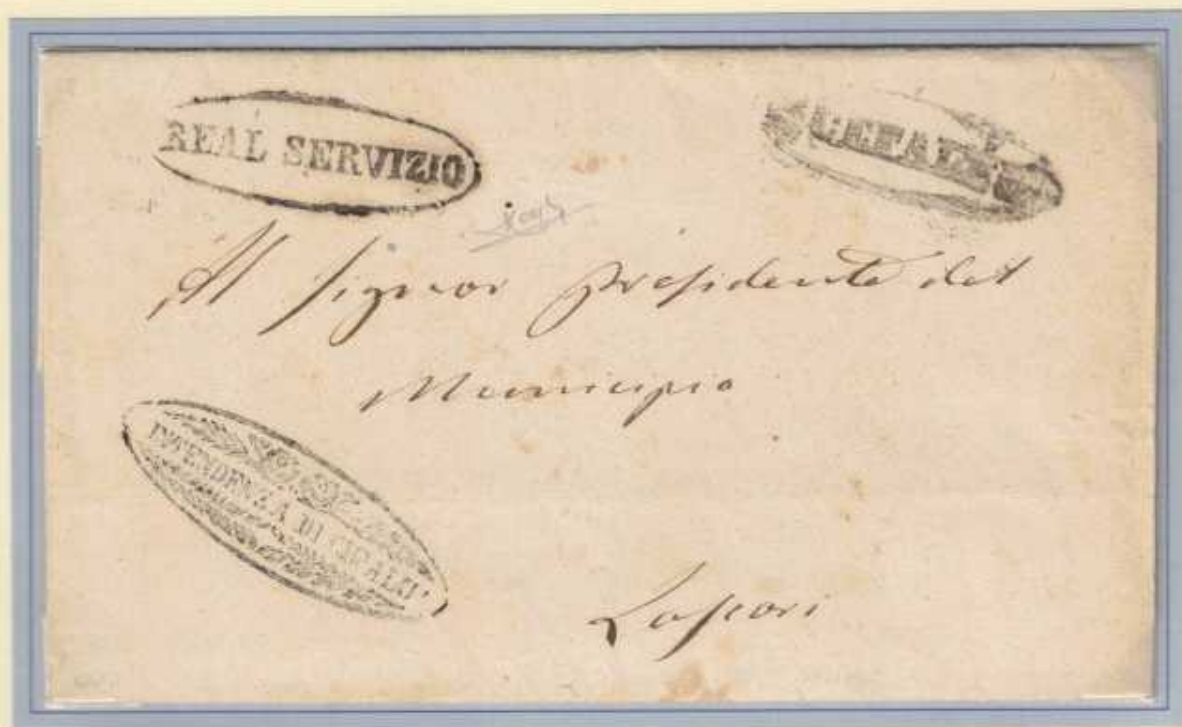 REAL SERVIZIO
CEFALU
Al Signor Presidente del
Municipio
INTENDENZA DI CEFALU'
Lascari